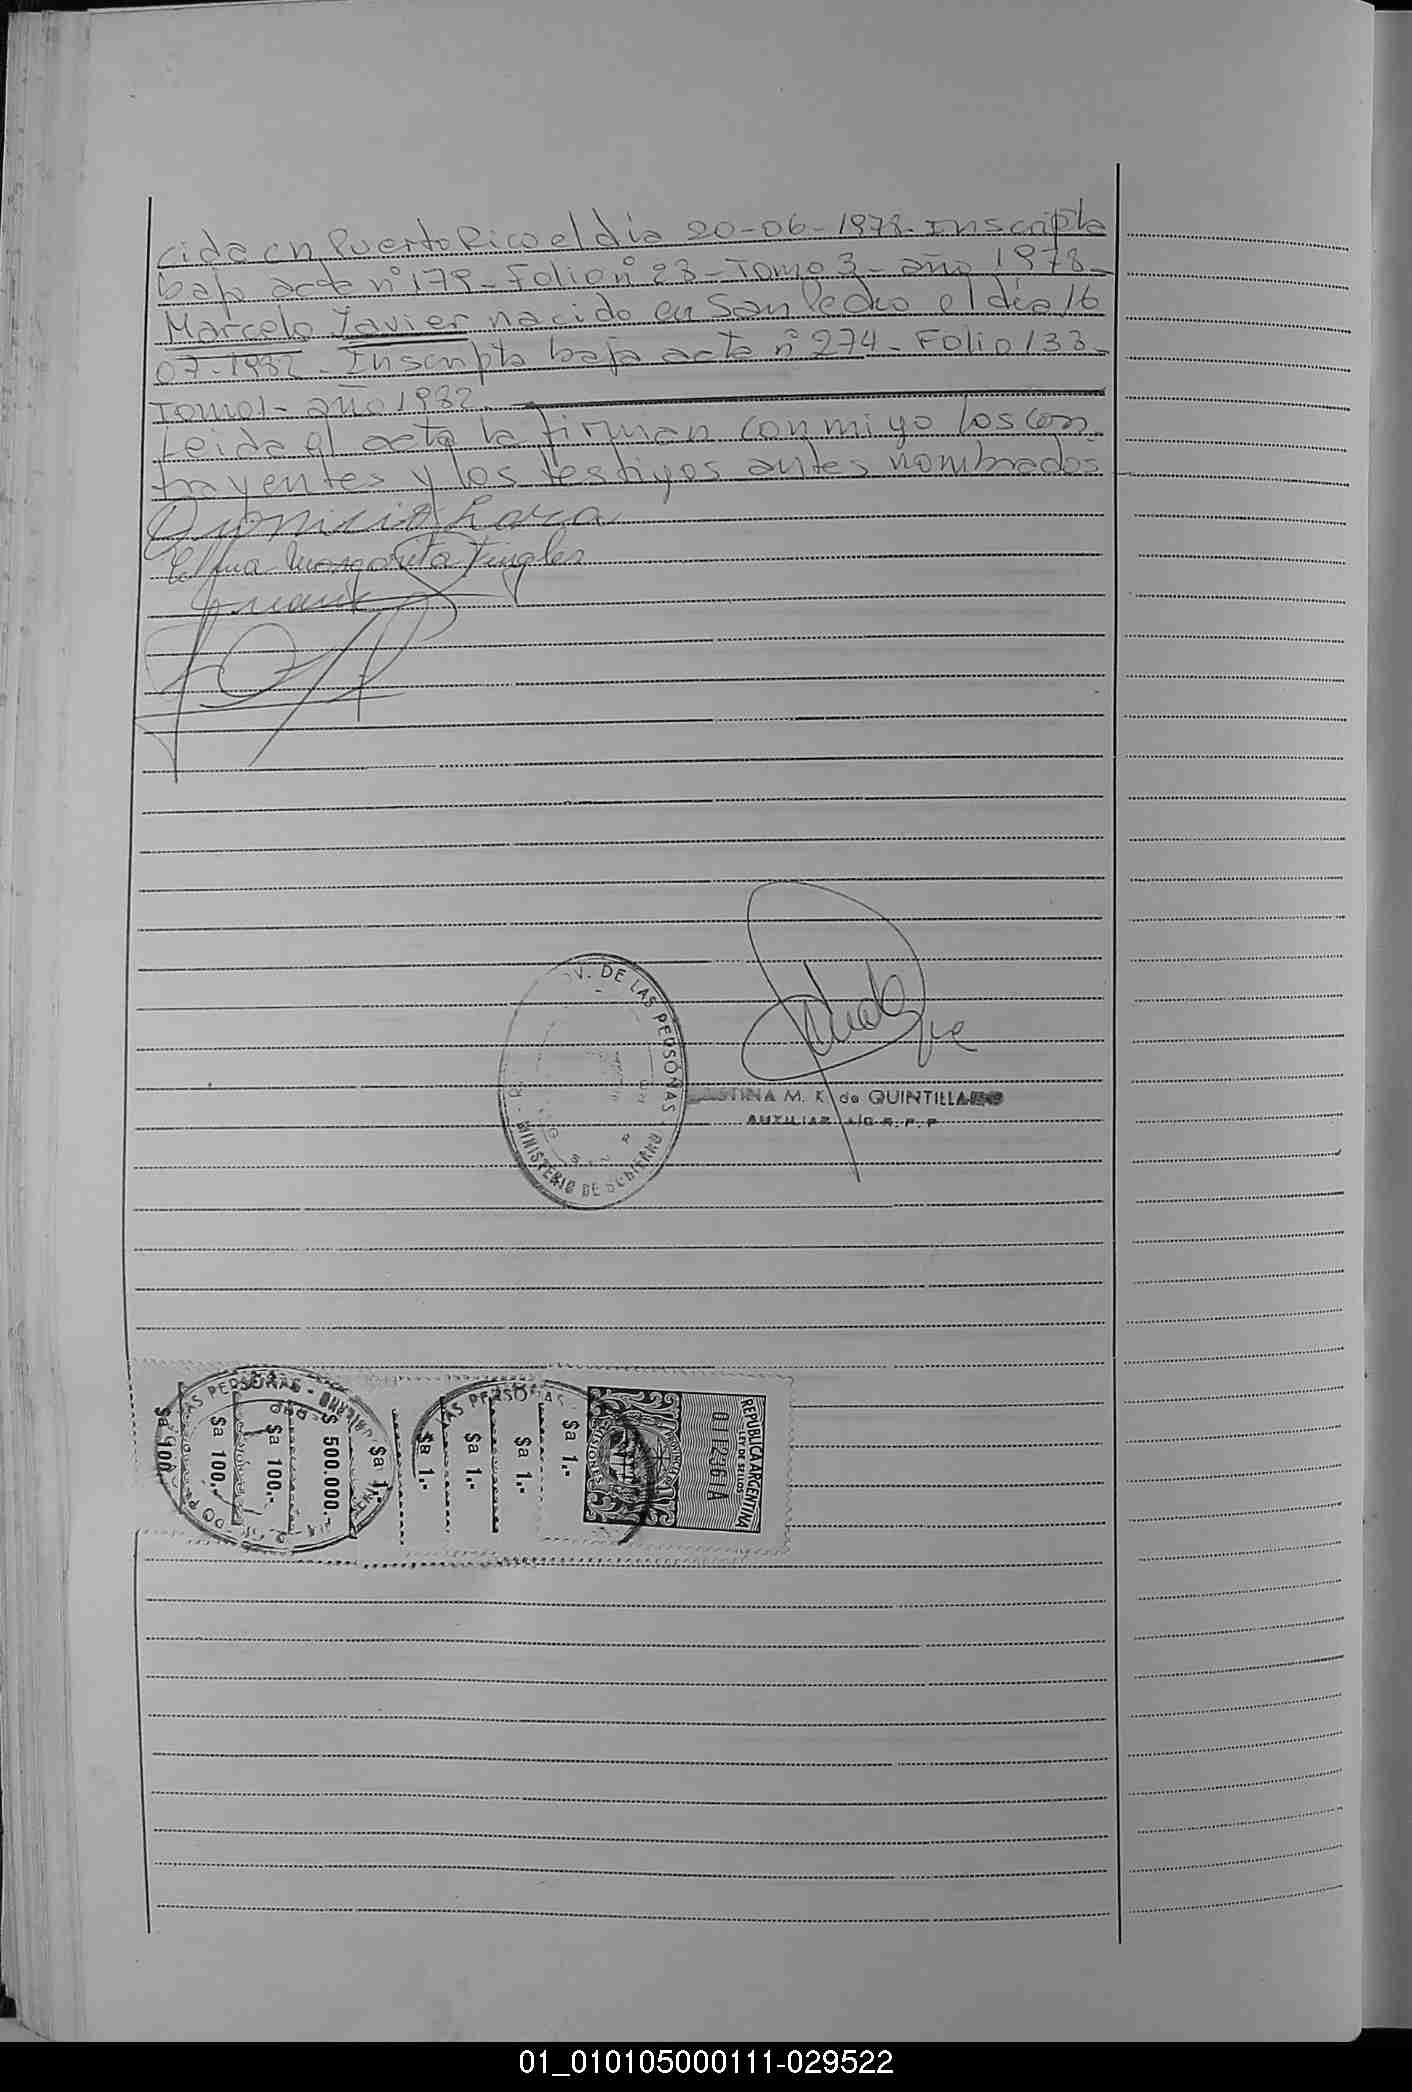 cida en Puerto Rico el día 20-06-1978- Inscripta
bajo acta nº 179- Folio nº 23- Tomo 3- año 1978-
Marcelo Javier nacido en San Pedro el día 16
07-1982- Inscripta bajo acta nº 274- Folio 133-
Tomo 1- año 1982.
Leida el acta la firman conmigo los con
trayentes y los testigos antes nombrados
Dionisio Lara
Elma Margarita Tingler
DE LAS PERSONAS
MINISTERIO DE GOBIERNO
M. K. de QUINTILLANO
AUXILIAR A/C R. P. P
AS PERSONAS -
$a 100.
$a 100.-
$a 100.-
$ 500.000.-
$a 1.-
AS PERSONAS
$a 1.-
$a 1.-
$a 1.-
$a 1.-
REPUBLICA ARGENTINA
LEY DE SELLOS
011236 A
PROVINCIA
MISIONES
01_010105000111-029522